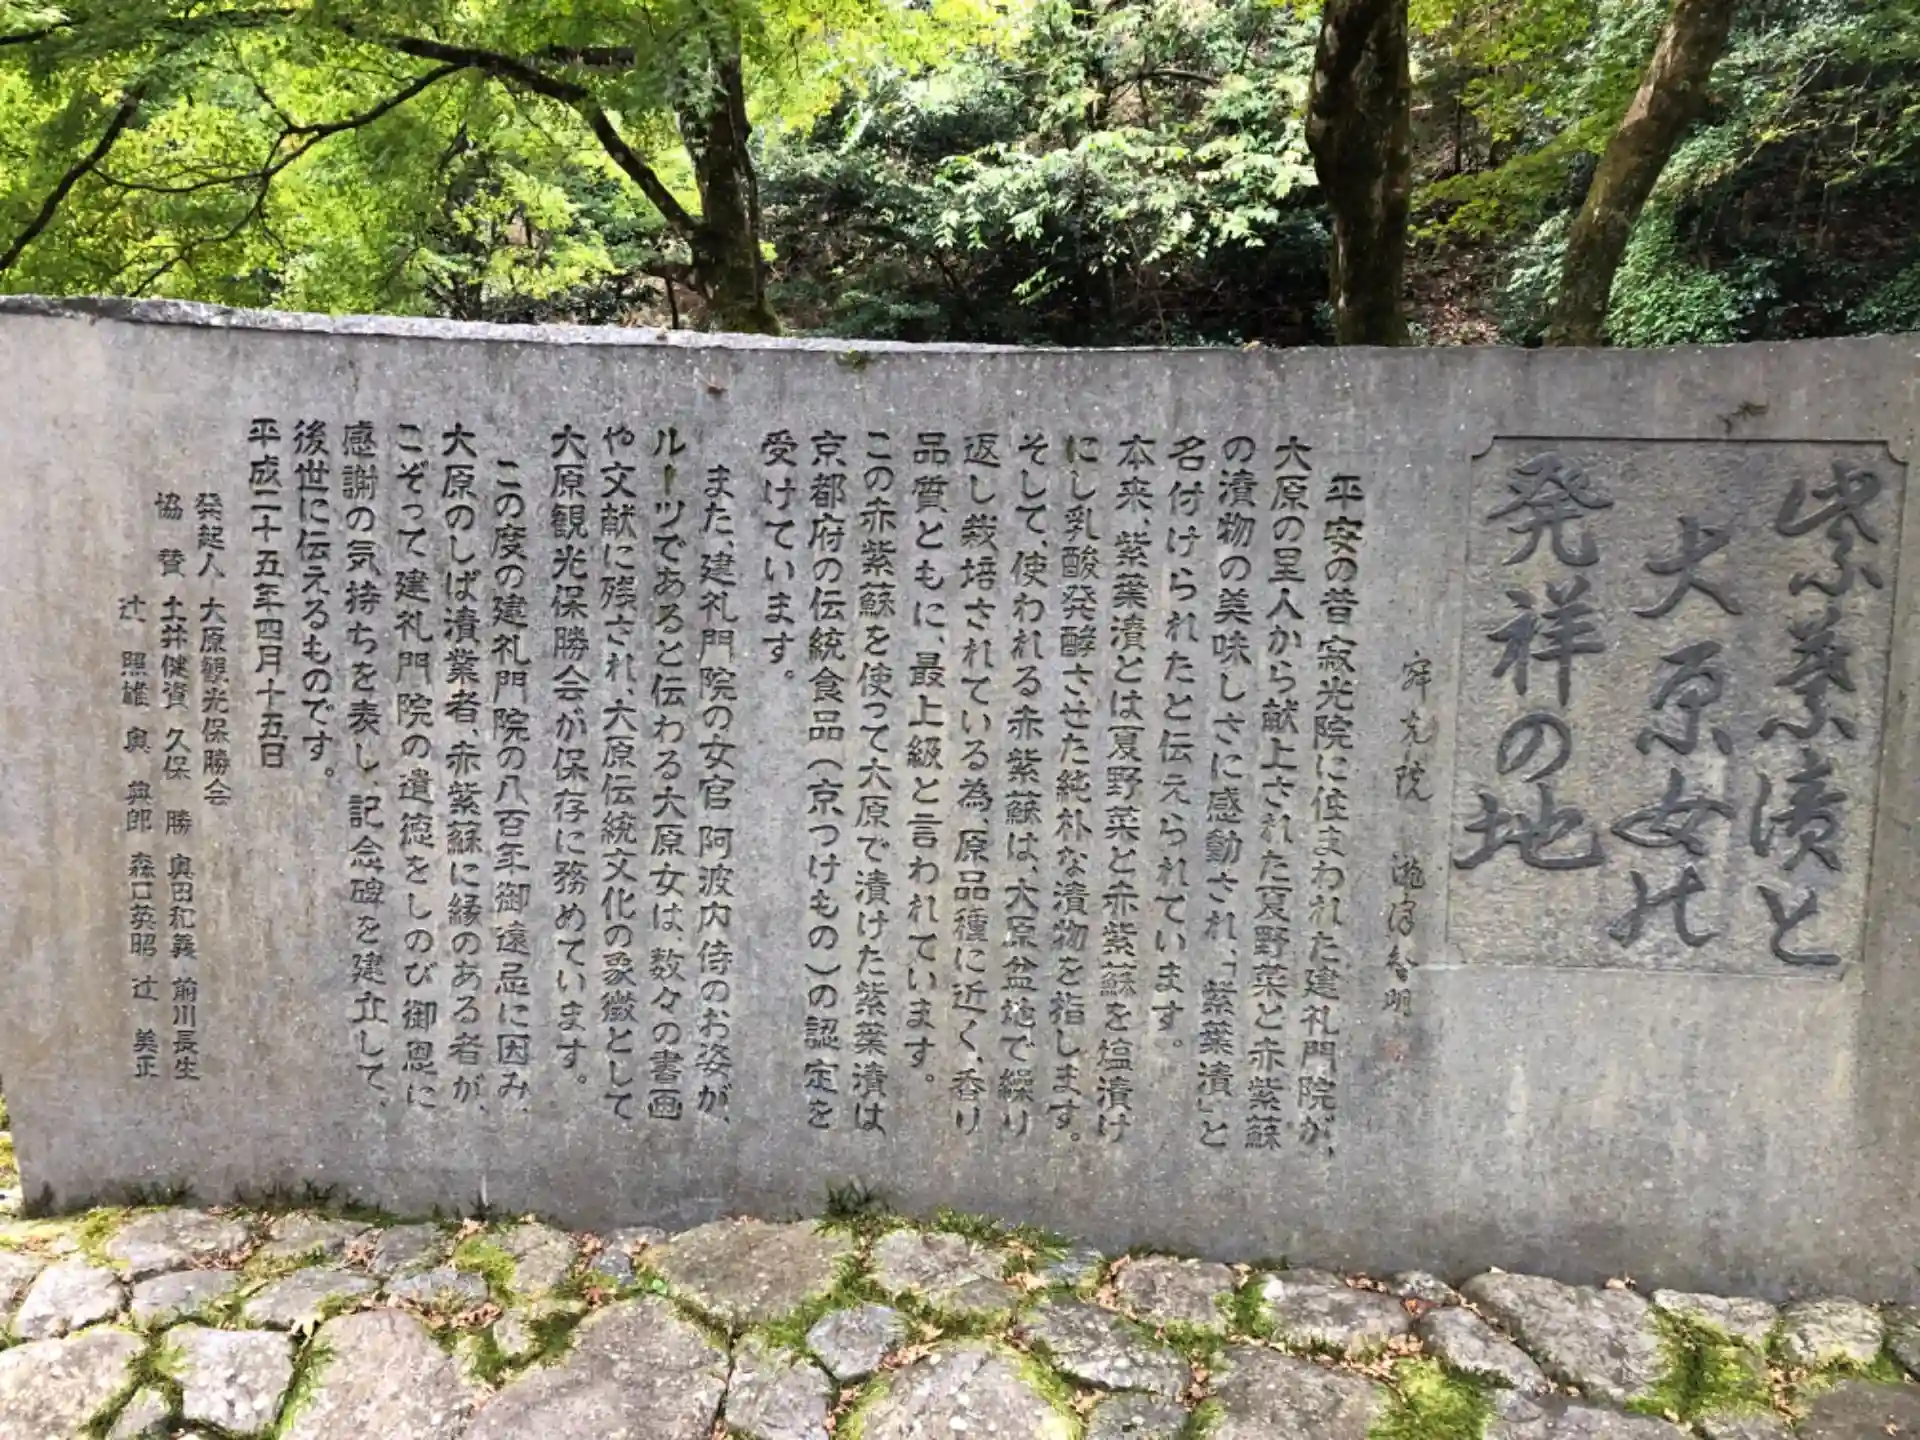 紫葉漬と
大原女の
発祥の地
寂光院 瀧澤智明
平安の昔 寂光院に住まわれた建礼門院が、
大原の里人から献上された夏野菜と赤紫蘇
の漬物の美味しさに感動され、「紫葉漬」と
名付けられたと伝えられています。
本来、紫葉漬とは夏野菜と赤紫蘇を塩漬け
にし乳酸発酵させた純朴な漬物を指します。
そして、使われる赤紫蘇は、大原盆地で繰り
返し栽培されている為、原品種に近く、香り
品質ともに、最上級と言われています。
この赤紫蘇を使って大原で漬けた紫葉漬は、
京都府の伝統食品(京つけもの)の認定を
受けています。
また、建礼門院の女官 阿波内侍のお姿が、
ルーツであると伝わる大原女は、数々の書画
や文献に残され、大原伝統文化の象徴として
大原観光保勝会が保存に務めています。
この度の建礼門院の八百年御遠忌に因み、
大原のしば漬業者、赤紫蘇に縁のある者が、
こぞって建礼門院の遺徳をしのび御恩に
感謝の気持ちを表し、記念碑を建立して、
後世に伝えるものです。
平成二十五年四月十五日
発起人 大原観光保勝会
協賛 土井健資 久保 勝 奥田和義 前川長生
辻 照雄 奥 典郎 森口英昭 辻 美正